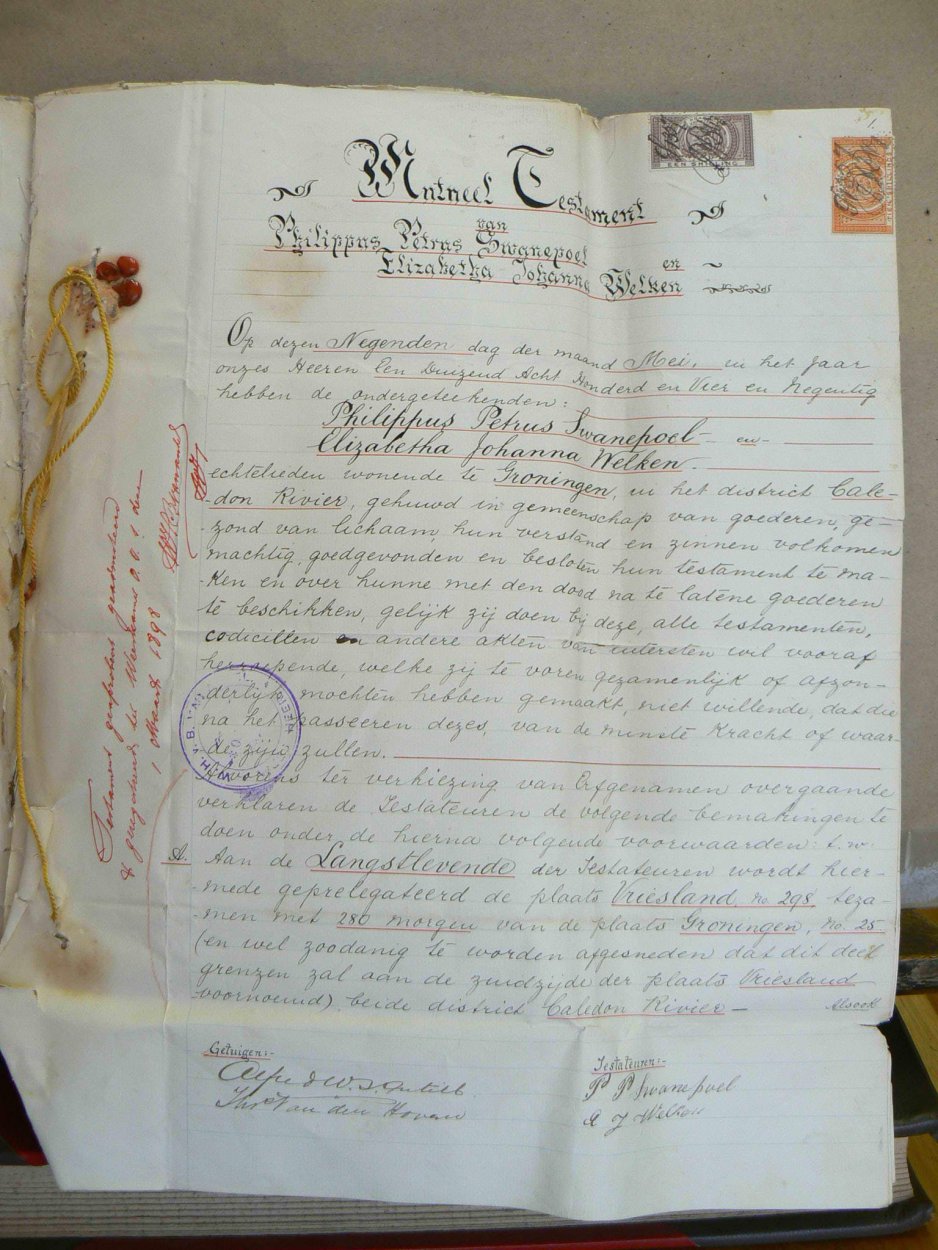 Mutueel Testament
van
Philippus Petrus Swanepoel
en
Elizabetha Johanna Welken
EEN SHILLING
Op dezen Negenden dag der maand Mei, in het Jaar
onzes Heeren Een Duizend Acht Honderd en Vier en Negentig
hebben de ondergeteekenden:
Philippus Petrus Swanepoel – en –
Elizabetha Johanna Welken.
echtelieden wonende te Groningen, in het district Cale-
-don Rivier, gehuwd in gemeenschap van goederen, ge-
-zond van lichaam, hun verstand en zinnen volkomen
machtig, goedgevonden en besloten hun testament te ma-
-ken en over hunne met den dood na te latene goederen
te beschikken, gelijk zij doen bij deze, alle testamenten,
codicillen en andere akten van uitersten wil vooraf
herroepende, welke zij te voren gezamenlijk of afzon-
-derlijk mochten hebben gemaakt, niet willende, dat die
na het passeeren dezes, van de minste Kracht of waar-
-de zijn zullen.
Alvorens ter verkiezing van Erfgenamen overgaande
verklaren de Testateuren de volgende bemakingen te
doen onder de hierna volgende voorwaarden: t. w:
A. Aan de Langstlevende der Testateuren wordt hier-
-mede geprelegateerd de plaats Vriesland no. 298, teza-
-men met 280 morgen van de plaats Groningen, No. 25
(en wel zoodanig te worden afgesneden dat dit deel
grenzen zal aan de zuidzijde der plaats Vriesland
voornoemd) beide district Caledon Rivier –
Alsook
Getuigen:-
Alfred W.
van den Hoven
Testateuren:-
P P Swanepoel
E J Welken
Testament geregistreerd
te Weeskamer O.V.S. den
1 Maart 1898